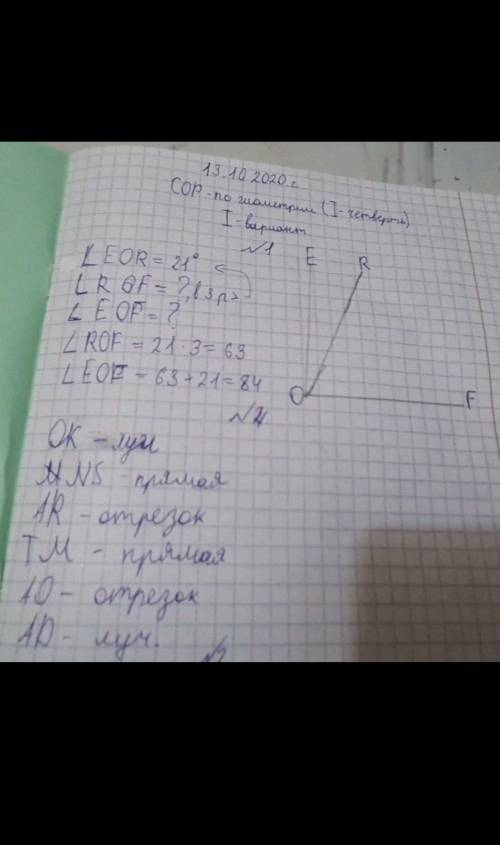 13.10.2020 г.
СОР - по гиометрии (I - четверть)
I - вариант
№1
E
R
∠EOR = 21°
∠ROF = ?, в 3 р >
∠EOF = ?
∠ROF = 21 · 3 = 63
∠EOF = 63 + 21 = 84
O
F
№2
OK - луч
NS - прямая
AR - отрезок
TM - прямая
AO - отрезок
AD - луч.